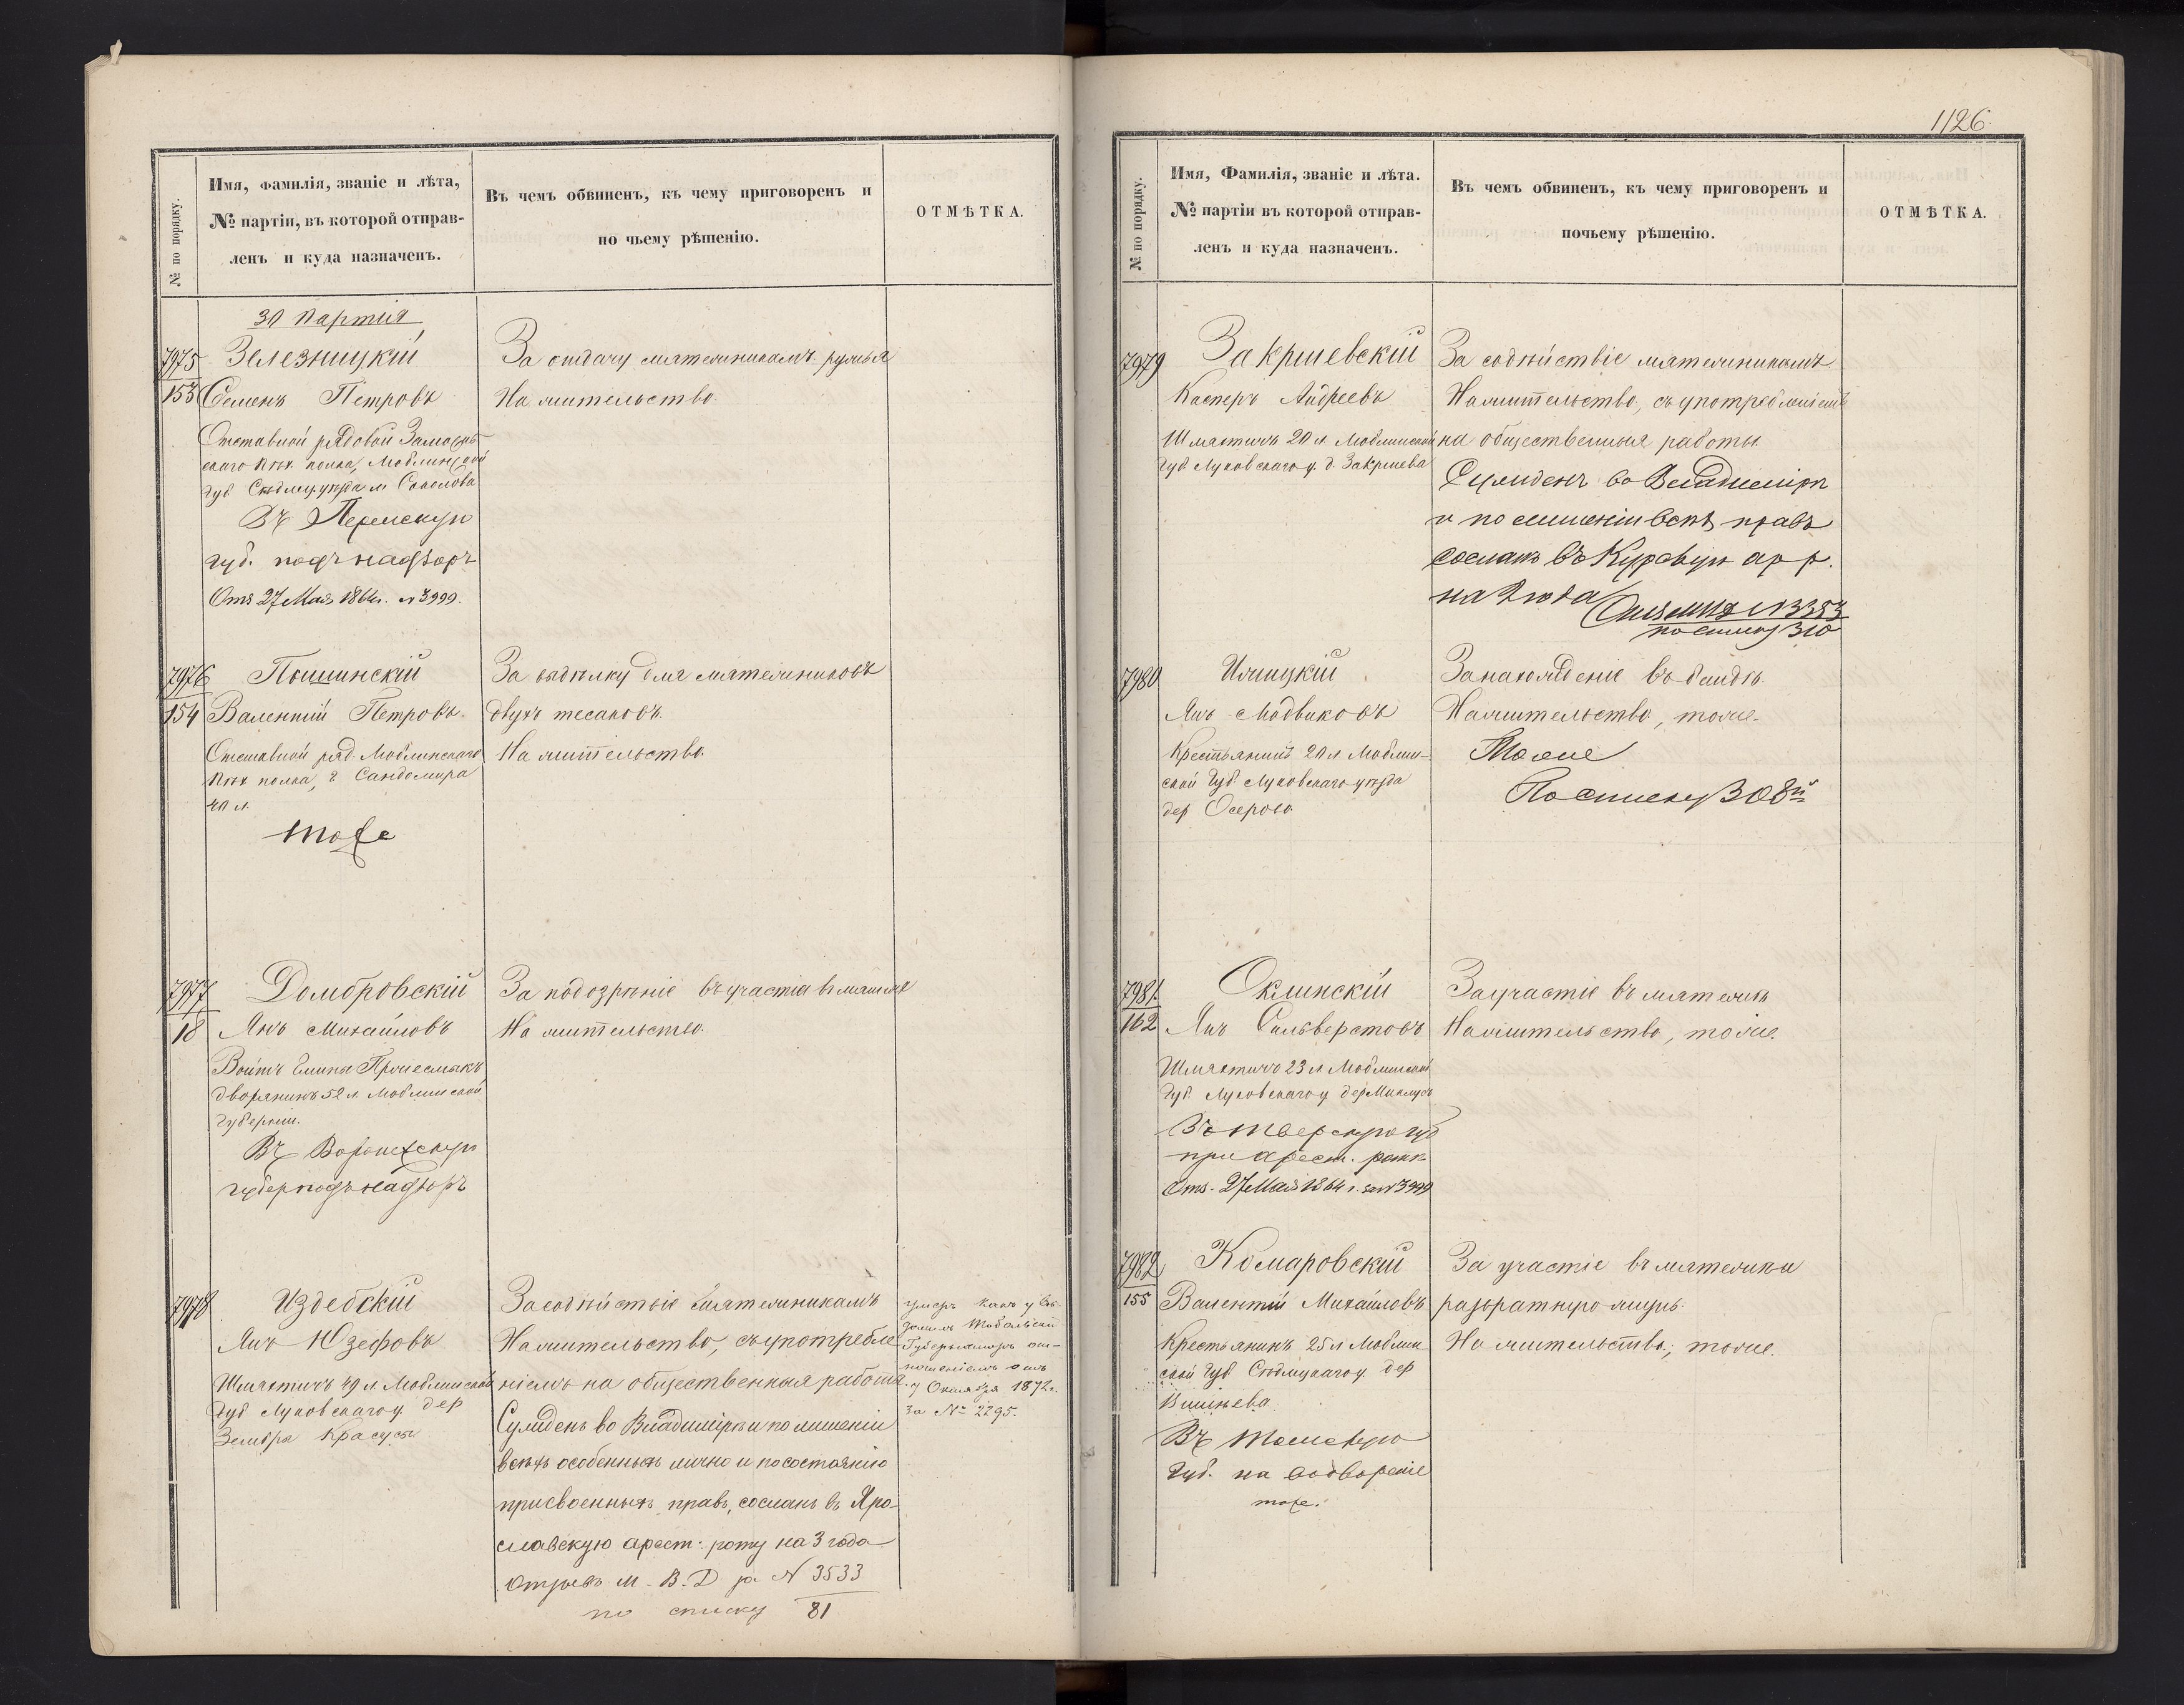 № по порядку.
Имя, Фамилія, званіе и лѣта,
№ партіи, въ которой отправ-
ленъ и куда назначенъ.
Въ чемъ обвиненъ, къ чему приговоренъ и
по чьему рѣшенію.
ОТМѢТКА.
30 Партія
7975
153
Зелезницкій
Семенъ Петровъ
Отставной рядовой Замосць-
скаго пѣх. полка, Люблинской
губ Сѣдлец уѣзда м Соколова
Въ Пермскую
губ. подъ надзоръ
Отз 27 Мая 1864 г. № 3999.
За отдачу мятежникамъ ружья
На жительство.
7976
154
Валентій Петровъ.
Отставной ряд. Люблинскаго
пѣх полка, г Сандомира
40 л.
тоже
За выдѣлку для мятежниковъ
двухъ тесаковъ.
На жительство.
7977
18
Домбровскій
Янъ Михайловъ
Войтъ Гмины
дворянинъ 52 л Люблинской
Губерніи.
Въ Воронежскую
губер подъ надзоръ
За подозрѣніе въ участіи въ мятежѣ
На жительство.
7978
Издебскій
Янъ Юзефовъ
Шляхтичъ 49 л Люблинской
Губ Луковскаго у дер
Зембры Красусы
За содѣйствіе мятежникамъ
На жительство, съ употребле-
ніемъ на общественныя работы.
Сужденъ во Владимірѣ и по лишеніи
всѣхъ особенныхъ лично и по состоянію
присвоенныхъ правъ, сосланъ въ Яро-
славскую арест: роту на 3 года
Отзывъ М. В. Д за № 3533
по списку 81
умеръ какъ увѣ-
домилъ Тобольскій
Губернаторъ от-
ношеніемъ отъ
7 Октября 1872 г.
за № 2295.
1126.
№ по порядку.
Имя, Фамилія, званіе и лѣта.
№ партіи въ которой отправ-
ленъ и куда назначенъ.
Въ чемъ обвиненъ, къ чему приговоренъ и
почьему рѣшенію.
ОТМѢТКА.
7979
Закршевскій
Касперъ Андреевъ
Шляхтичъ 20 л Люблинской
Губ Луковскаго у. д. Закршева
За содѣйствіе мятежникамъ.
На жительство, съ употребленіемъ
на общественныя работы
Сужденъ во Владимірѣ
и по лишеніи всѣхъ правъ
сосланъ въ Курскую ар р.
на 2 года
по списку 310
7980
Илицкій
Янъ Людвиковъ
Крестьянинъ 20 л Люблин-
ской Губ Луковскаго уѣзда
дер Осерово
За нахожденіе въ бандѣ.
На жительство, тоже.
Тоже
По списку 308й
7981.
162
Оклинскій
Янъ Сильверстовъ
Шляхтичъ 23 л Люблинской
Губ Луковскаго у дер
Въ тверскую губ
при арест. ротѣ
Отз. 27 Мая 1864 г. за № 3999
За участіе въ мятежѣ
На жительство, тоже.
7982
155
Комаровскій
Валентій Михайловъ
Крестьянинъ 25 л Люблин
ской Губ Сѣдлецкаго у дер
Вишнева.
Въ Томскую
Губ. на водвореніе
тоже.
За участіе въ мятежѣ и
развратную жизнь.
На жительство, тоже.